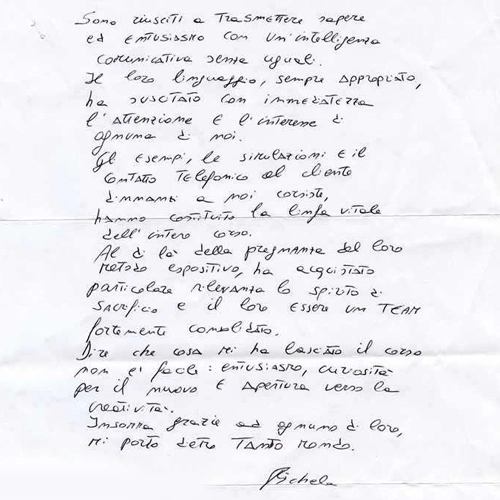 Sono riusciti a trasmettere sapere
ed entusiasmo con un'intelligenza
comunicativa senza uguali.
Il loro linguaggio, sempre appropriato,
ha suscitato con immediatezza
l'attenzione e l'interesse di
ognuno di noi.
Gli esempi, le simulazioni e il
contatto telefonico col cliente
dinnanzi a noi corsisti,
hanno costituito la linfa vitale
dell'intero corso.
Al di là della pregnanza del loro
metodo espositivo, ha acquistato
particolare rilevanza lo spirito di
sacrificio e il loro essere un TEAM
fortemente consolidato.
Dire che cosa mi ha lasciato il corso
non e' facile: entusiasmo, curiosità
per il nuovo e apertura verso la
creatività.
Insomma grazie ad ognuno di loro,
mi porto dietro tanto mondo.
Michela